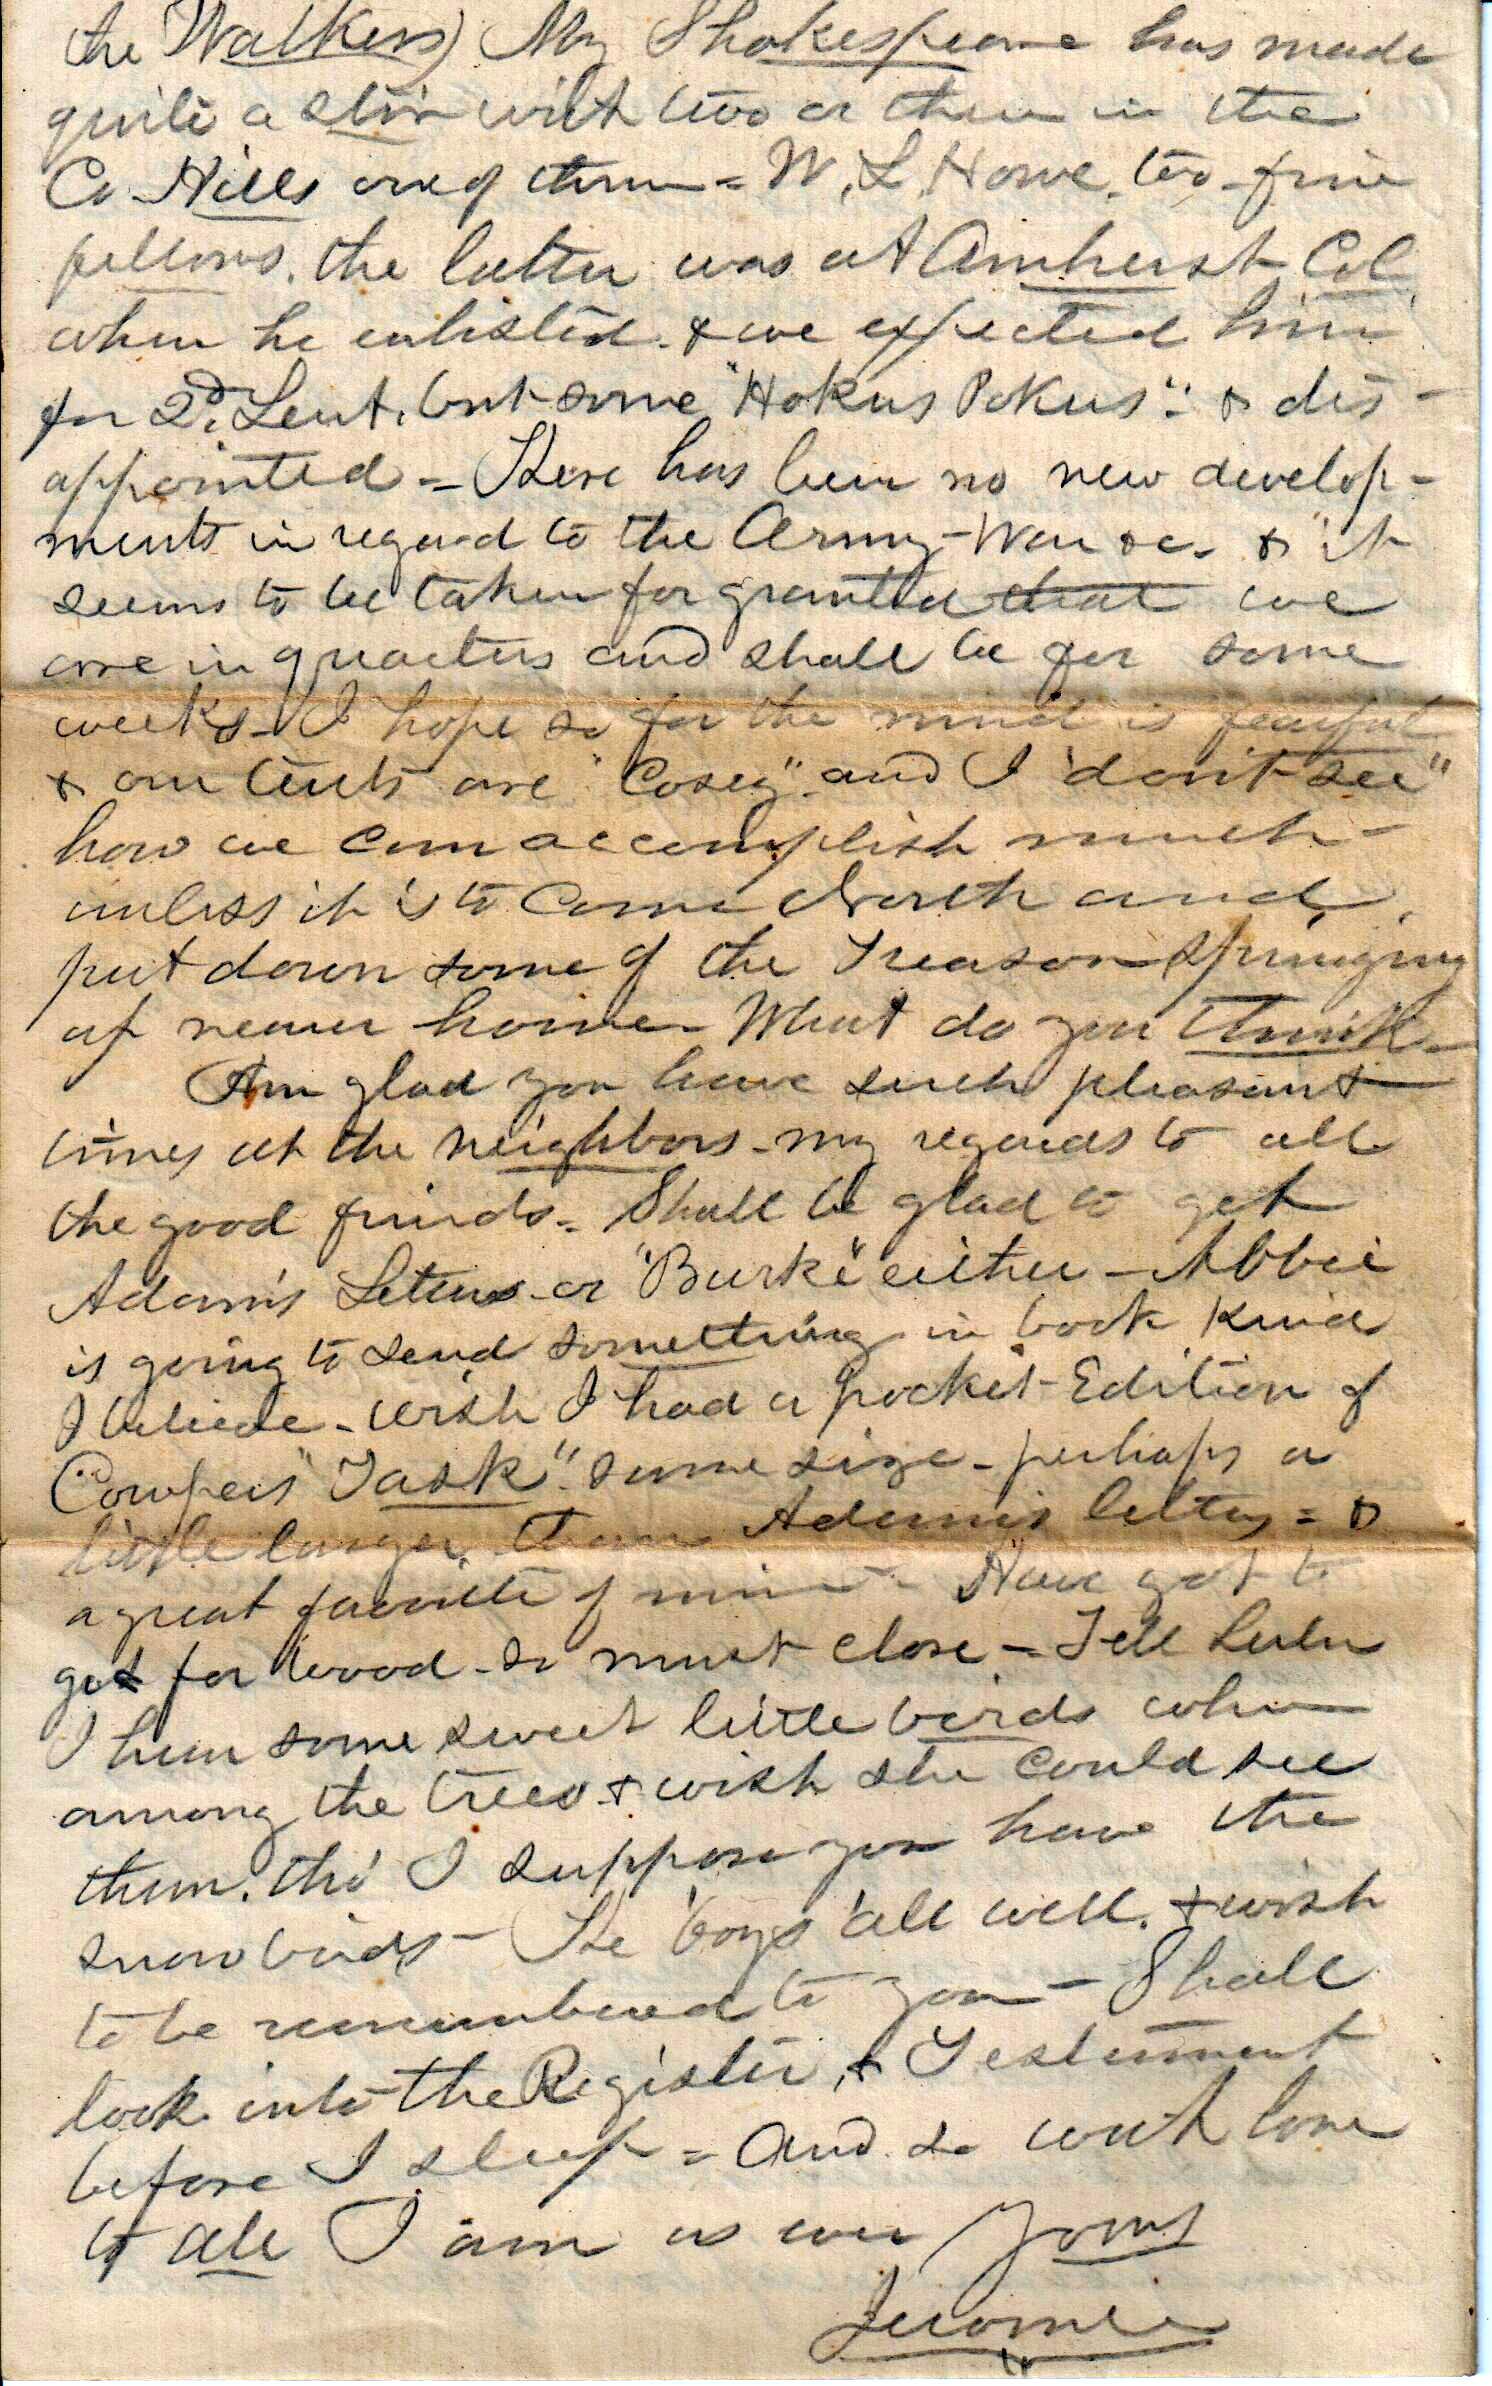 the Walkers) My Shakespeare has made
quite a stir with two or three in the
Co. Hills one of them = W. L. Howe, two fine
fellows. the latter was at Amherst Col.
when he enlisted. & we expected him
for 2d. Leut. but some "Hokus Pokus": & dis-
appointed = There has been no new develop-
ments in regard to the Army - War &c. & it
seems to be taken for granted that we
are in quarters and shall be for some
weeks - I hope so for the mud is fearful
& our tents are "Cosey". and I "don't see"
how we can accomplish much -
unless it is to Come North and
put down some of the Treason springing
up nearer home - What do you think -
Am glad you have such pleasant
times at the neighbors - my regards to all
the good friends = Shall be glad to get
Adam's Letters - or "Burke" either - Abbie
is going to send something in book kind
I believe - wish I had a pocket - Edition of
Cowper's "Task". same size - perhaps a
little larger than Adam's letters = &
a great favorite of mine - Have got to
get for wood - so must close - Tell Lulu
I hear some sweet little birds when
among the trees & wish she could see
them. tho' I suppose you have the
snow birds - The 'boys' all well. & wish
to be remembered to you - Shall
look into the Register, & Testament
before I sleep = And so with love
to all I am as ever Yours
Jerome